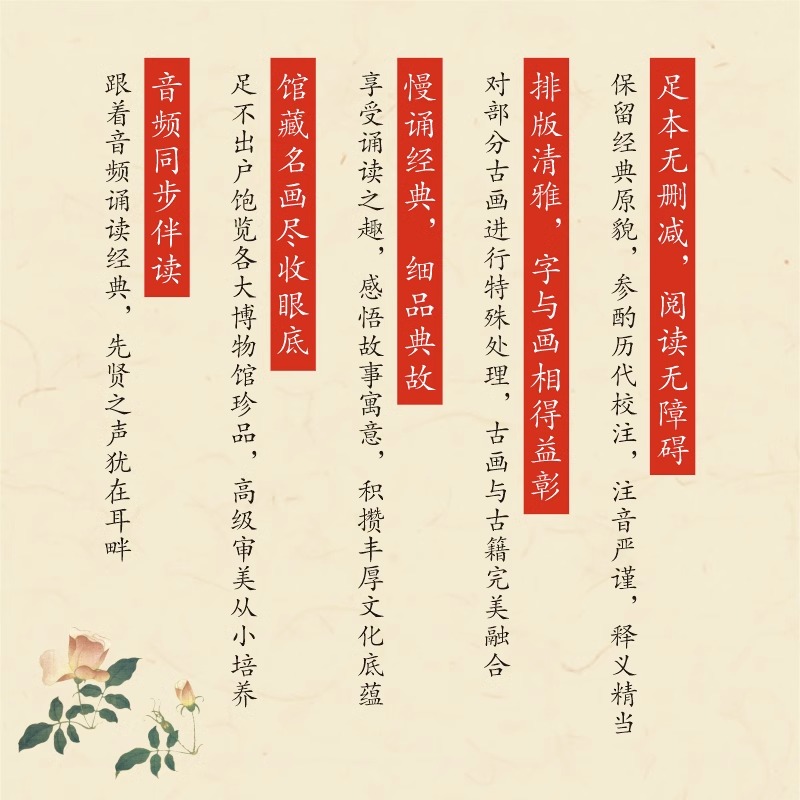 足本无删减，阅读无障碍
保留经典原貌，参酌历代校注，注音严谨，释义精当
排版清雅，字与画相得益彰
对部分古画进行特殊处理，古画与古籍完美融合
慢诵经典，细品典故
享受诵读之趣，感悟故事寓意，积攒丰厚文化底蕴
馆藏名画尽收眼底
足不出户饱览各大博物馆珍品，高级审美从小培养
音频同步伴读
跟着音频诵读经典，先贤之声犹在耳畔